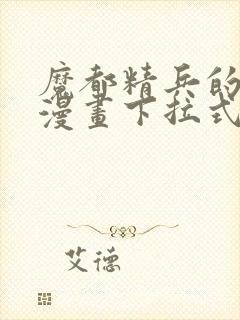 魔都精兵的
漫畫下拉式
艾德